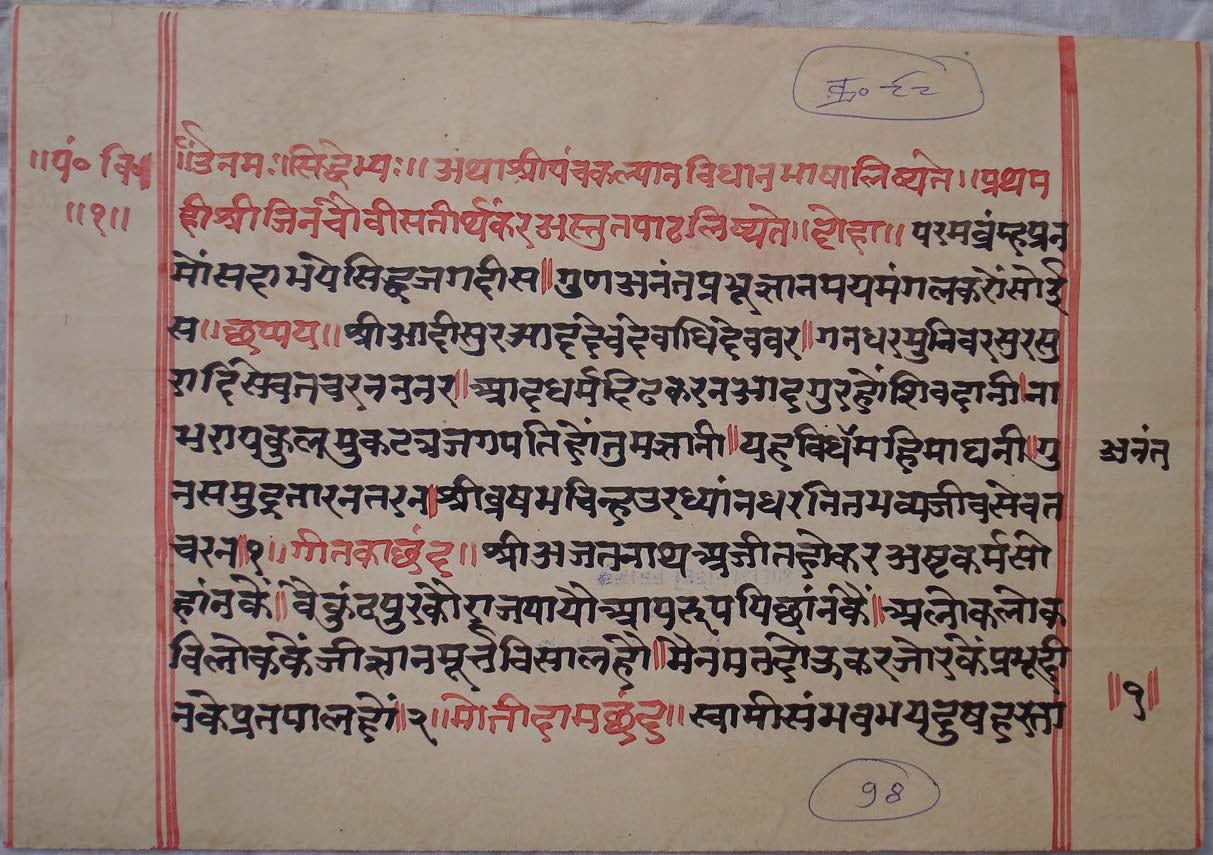 क्र० ६८
॥पं० वि॥
॥१॥
॥ॐनमः॥सिद्धेभ्यः॥ अथाश्रीपंचकल्यानविधानभाषालिख्यते॥प्रथम
हीश्रीजिनचौवीसतीर्थंकरअस्तुतपाठलिष्यते॥दोहा॥ परमव्रंम्हप्रन
मोंसदाभयेसिद्धजगदीस॥गुणअनंतप्रभूज्ञानमयमंगलकरोंसोई
स॥छप्पय॥ श्रीआदीसुरआददेवदेवाधिदेववर॥गनधरमुनिवरसुरसु
रादिसेवतचरनननर॥आदधर्महिढकरनआदगुरहोंशिवदानी॥ना
भरायकुलमुकटत्रजगपतिहोंतुमज्ञानी॥यहविधिमहिमाघनी॥गु
नसमुद्रतारनतरन॥श्रीव्रषभचिन्हउरध्यांनधरनितभव्यजीवसेवत
चरन॥१॥गीतकाछंद॥ श्रीअजतनाथअजीतहोकरअष्टकर्मसो
हांनकें॥वैकुंठपुरकौराजपायौआपरूपपिछांनकें॥अलोकलोक
विलोककेंजीज्ञानमूर्तविसालहौ॥मैनमतहोऊकरजोरकेंप्रभूदी
नकेप्रतपालहौं॥२॥मोतीदामछंद॥ स्वामीसंभवभयदुषहरता
अनंत
॥१॥
98